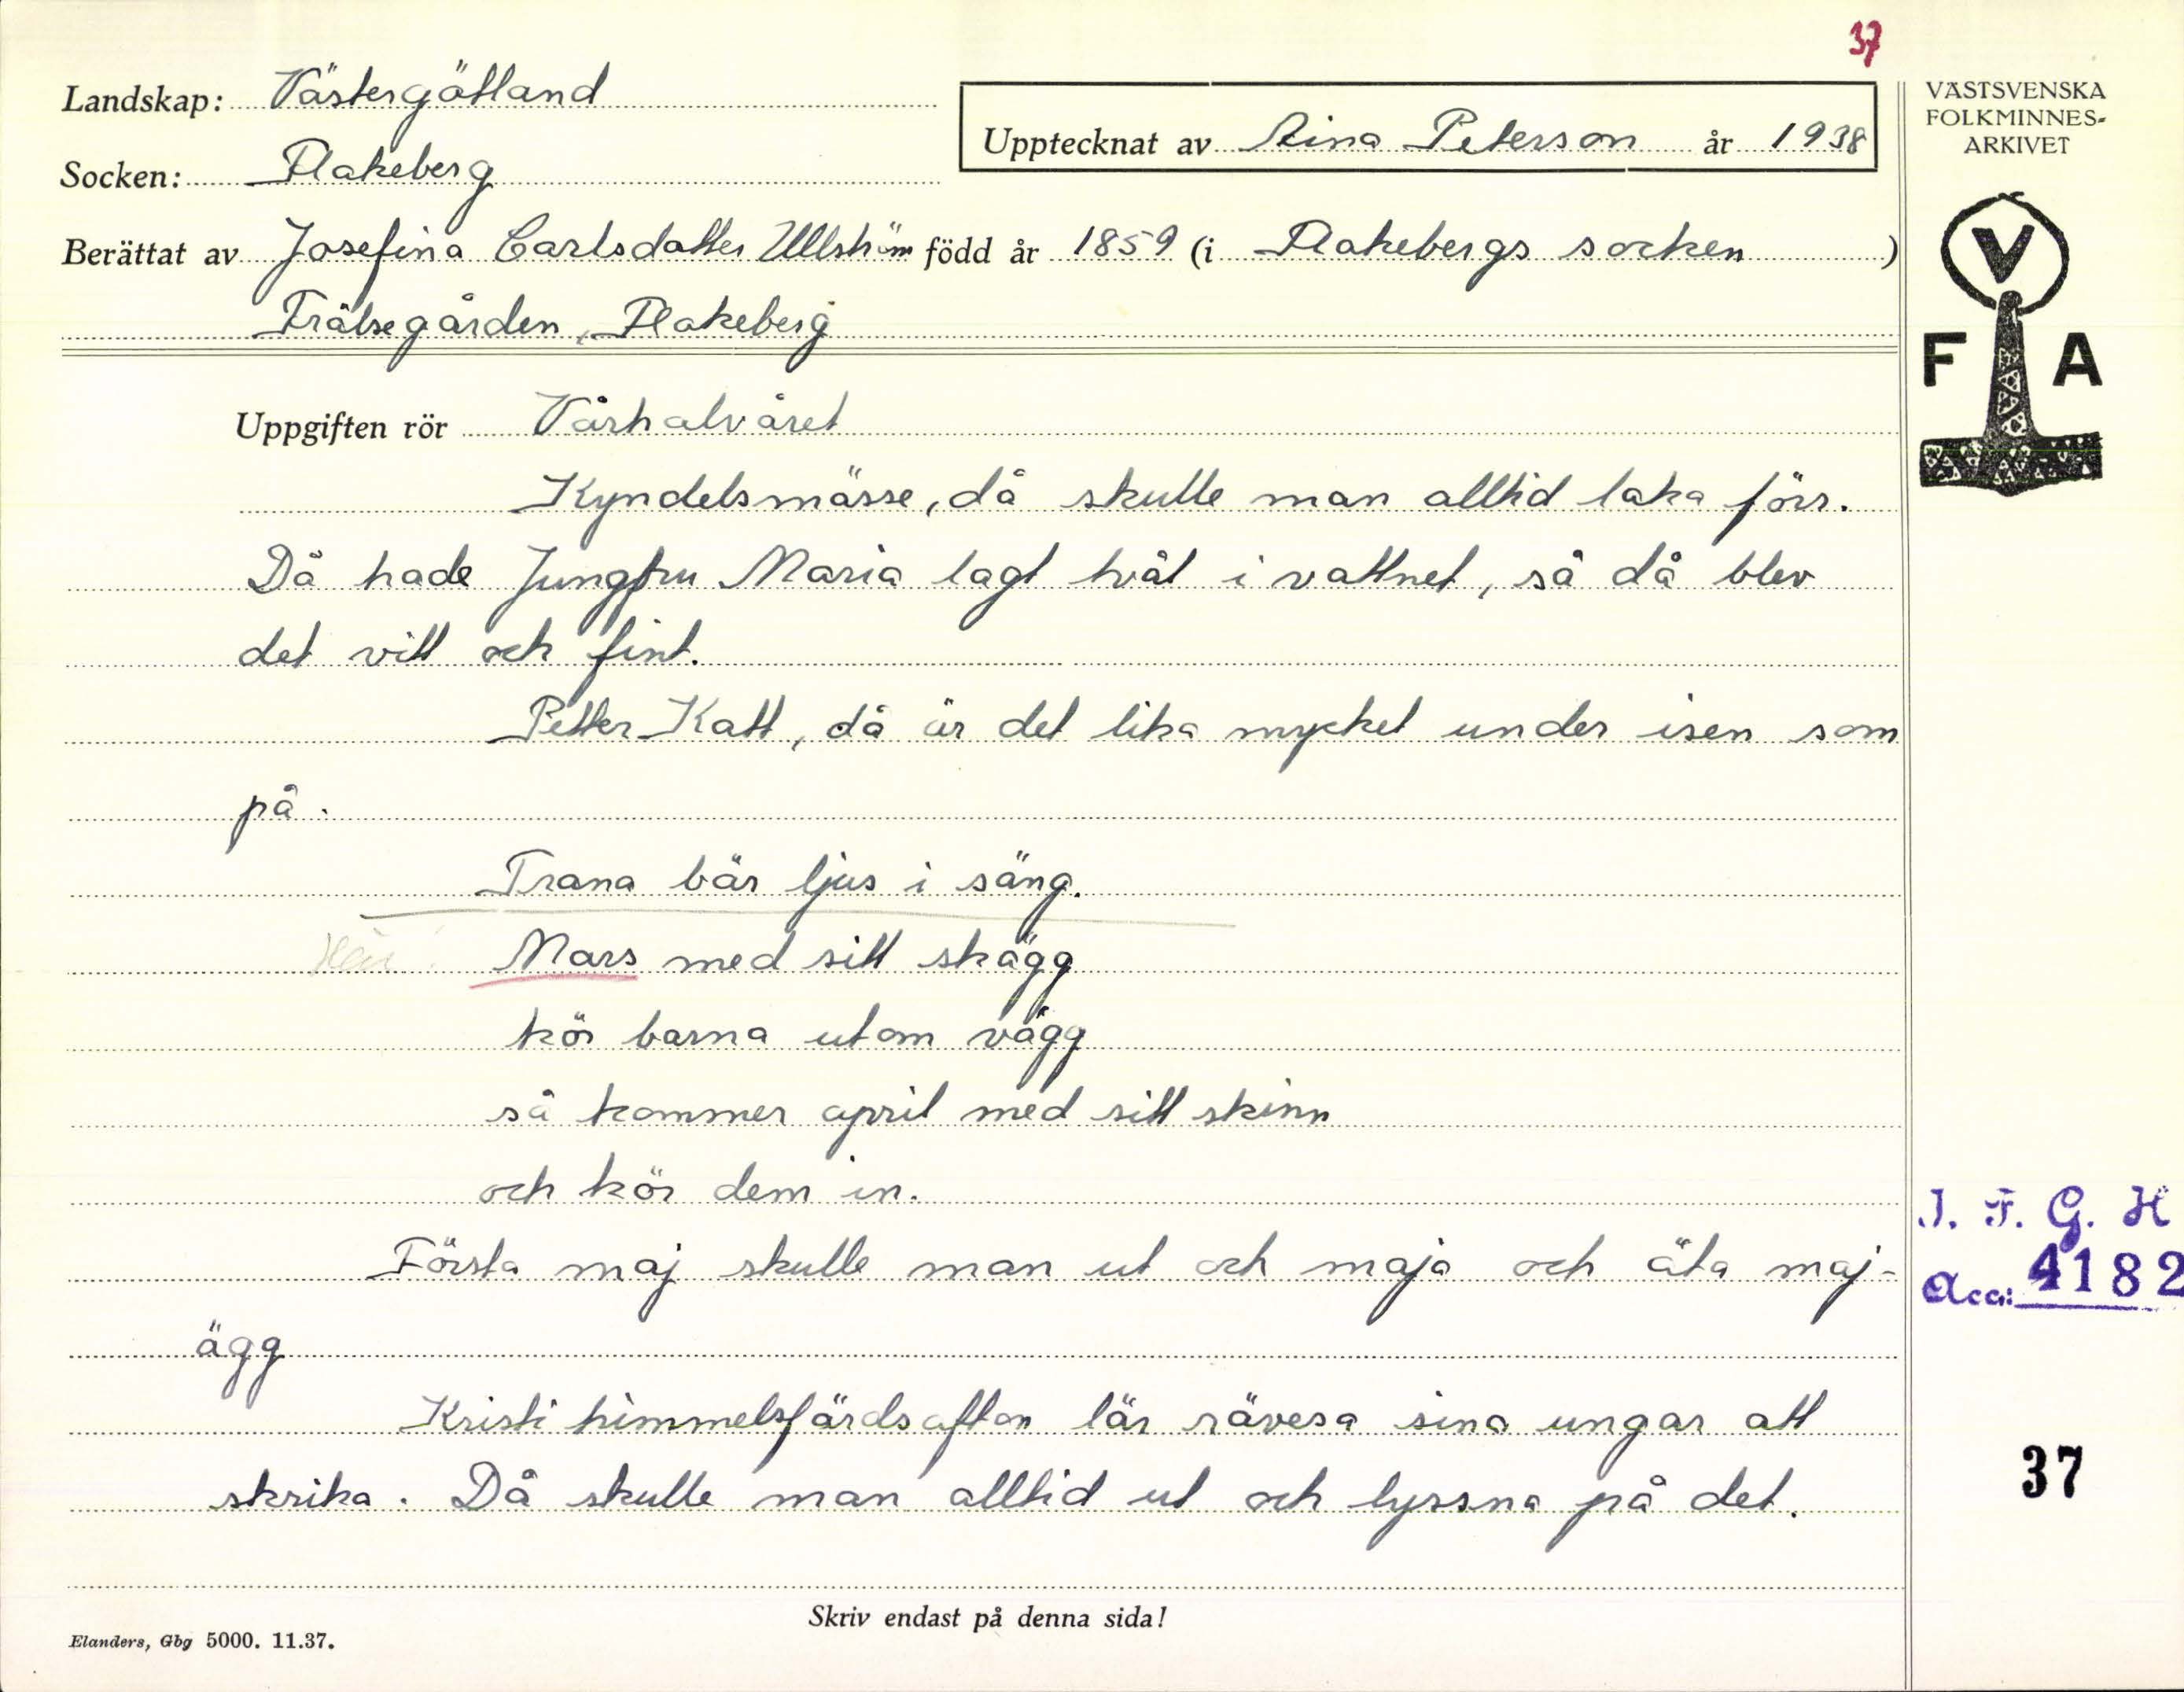 37
Landskap: Västergötland
Upptecknat av Aina Peterson år 1938
Socken: Flakeberg
Berättat av Josefina Carlsdotter Ullström född år 1859 (i Flakebergs socken )
Frälsegården, Flakeberg
VÄSTSVENSKA
FOLKMINNES-
ARKIVET
V
F A
Uppgiften rör Vårhalvåret
Kyndelsmässe, då skulle man alltid laka förr.
Då hade Jungfru Maria lagt tvål i vattnet, så då blev
det vitt och fint.
Petter Katt, då är det lika mycket under isen som
på.
Trana bär ljus i säng.
Mars med sitt skägg
kör barna utom vägg
så kommer april med sitt skinn
och kör dem in.
Första maj skulle man ut och maja och äta maj-
ägg
Kristi himmelsfärdsafton lär rävesa sina ungar att
skrika. Då skulle man alltid ut och lyssna på det.
I. F. G. H
Acc: 4182
37
Skriv endast på denna sida!
Elanders, Gbg 5000. 11.37.